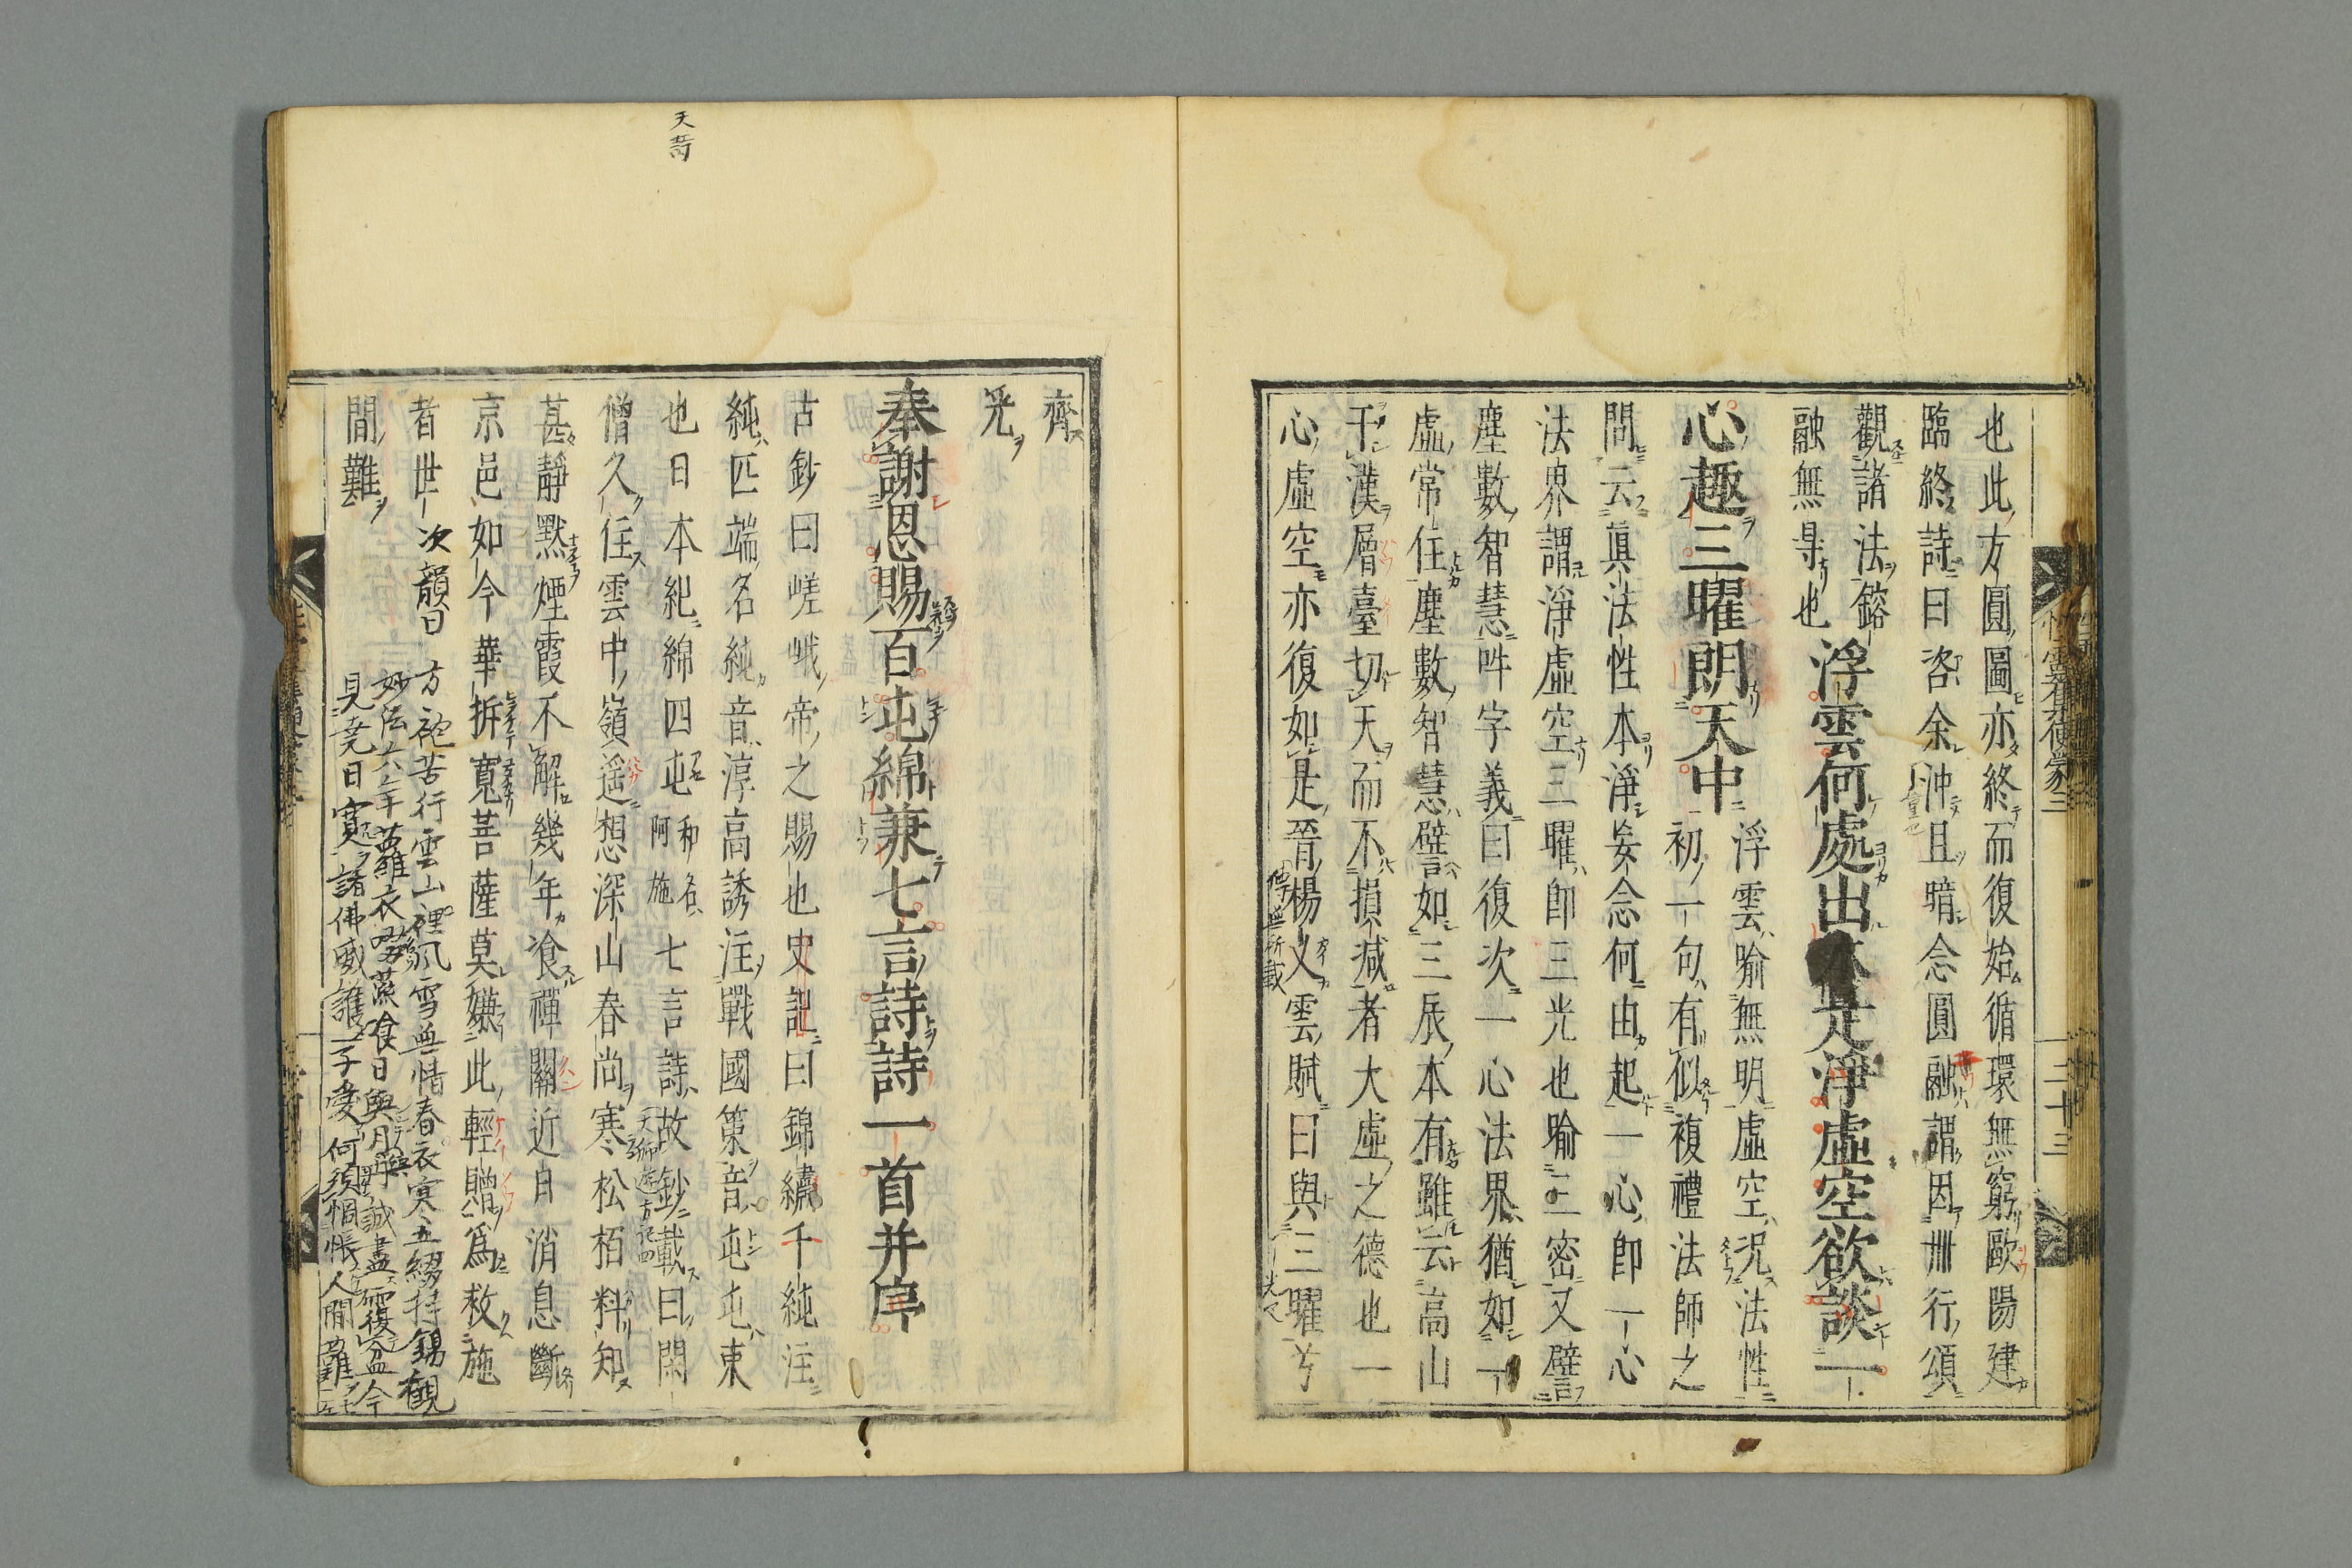 也此方圓圖亦終而復始循環無窮歐陽建
臨終詩曰咨余沖且暗念圓融謂因卌行頌
觀諸法鎔
融無㝵也
浮雲何處出本是淨虛空欲談一
心趣三曜朗天中
浮雲喻無明虛空况法性
初一句有似複禮法師之
問云眞法性本淨妄念何由起一心卽一心
法界謂淨虛空三曜卽三光也喻三密又譬
塵數智慧吽字義曰復次一心法界猶如一
虛常住塵數智慧譬如三辰本有雖云高山
干漢層臺切天而不損減者大虛之德也一
心虛空亦復如是晉楊乂雲賦曰與三曜兮
二十三
齊
光
奉謝恩賜百屯綿兼七言詩詩一首并序
古鈔曰嵯峨帝之賜也史記曰錦繡千純注
純匹端名純音淳高誘注戰國策音屯屯東
也日本紀綿四屯
和名
阿施
七言詩故鈔載曰閑
僧久住雲中嶺遥想深山春尚寒松栢料知
甚靜默煙霞不解幾年飡禪關近日消息斷
京邑如今華拆寬菩薩莫嫌此輕贈爲救施
者世
間難
次韻曰
方袍苦行雲山裡風雪無情春衣寒五綴持錫觀
妙法六年蘿衣啜蔬飡日與月與丹誠盡覆盆今
見堯日寬諸佛威護一子愛何須惆悵人間難
天喬